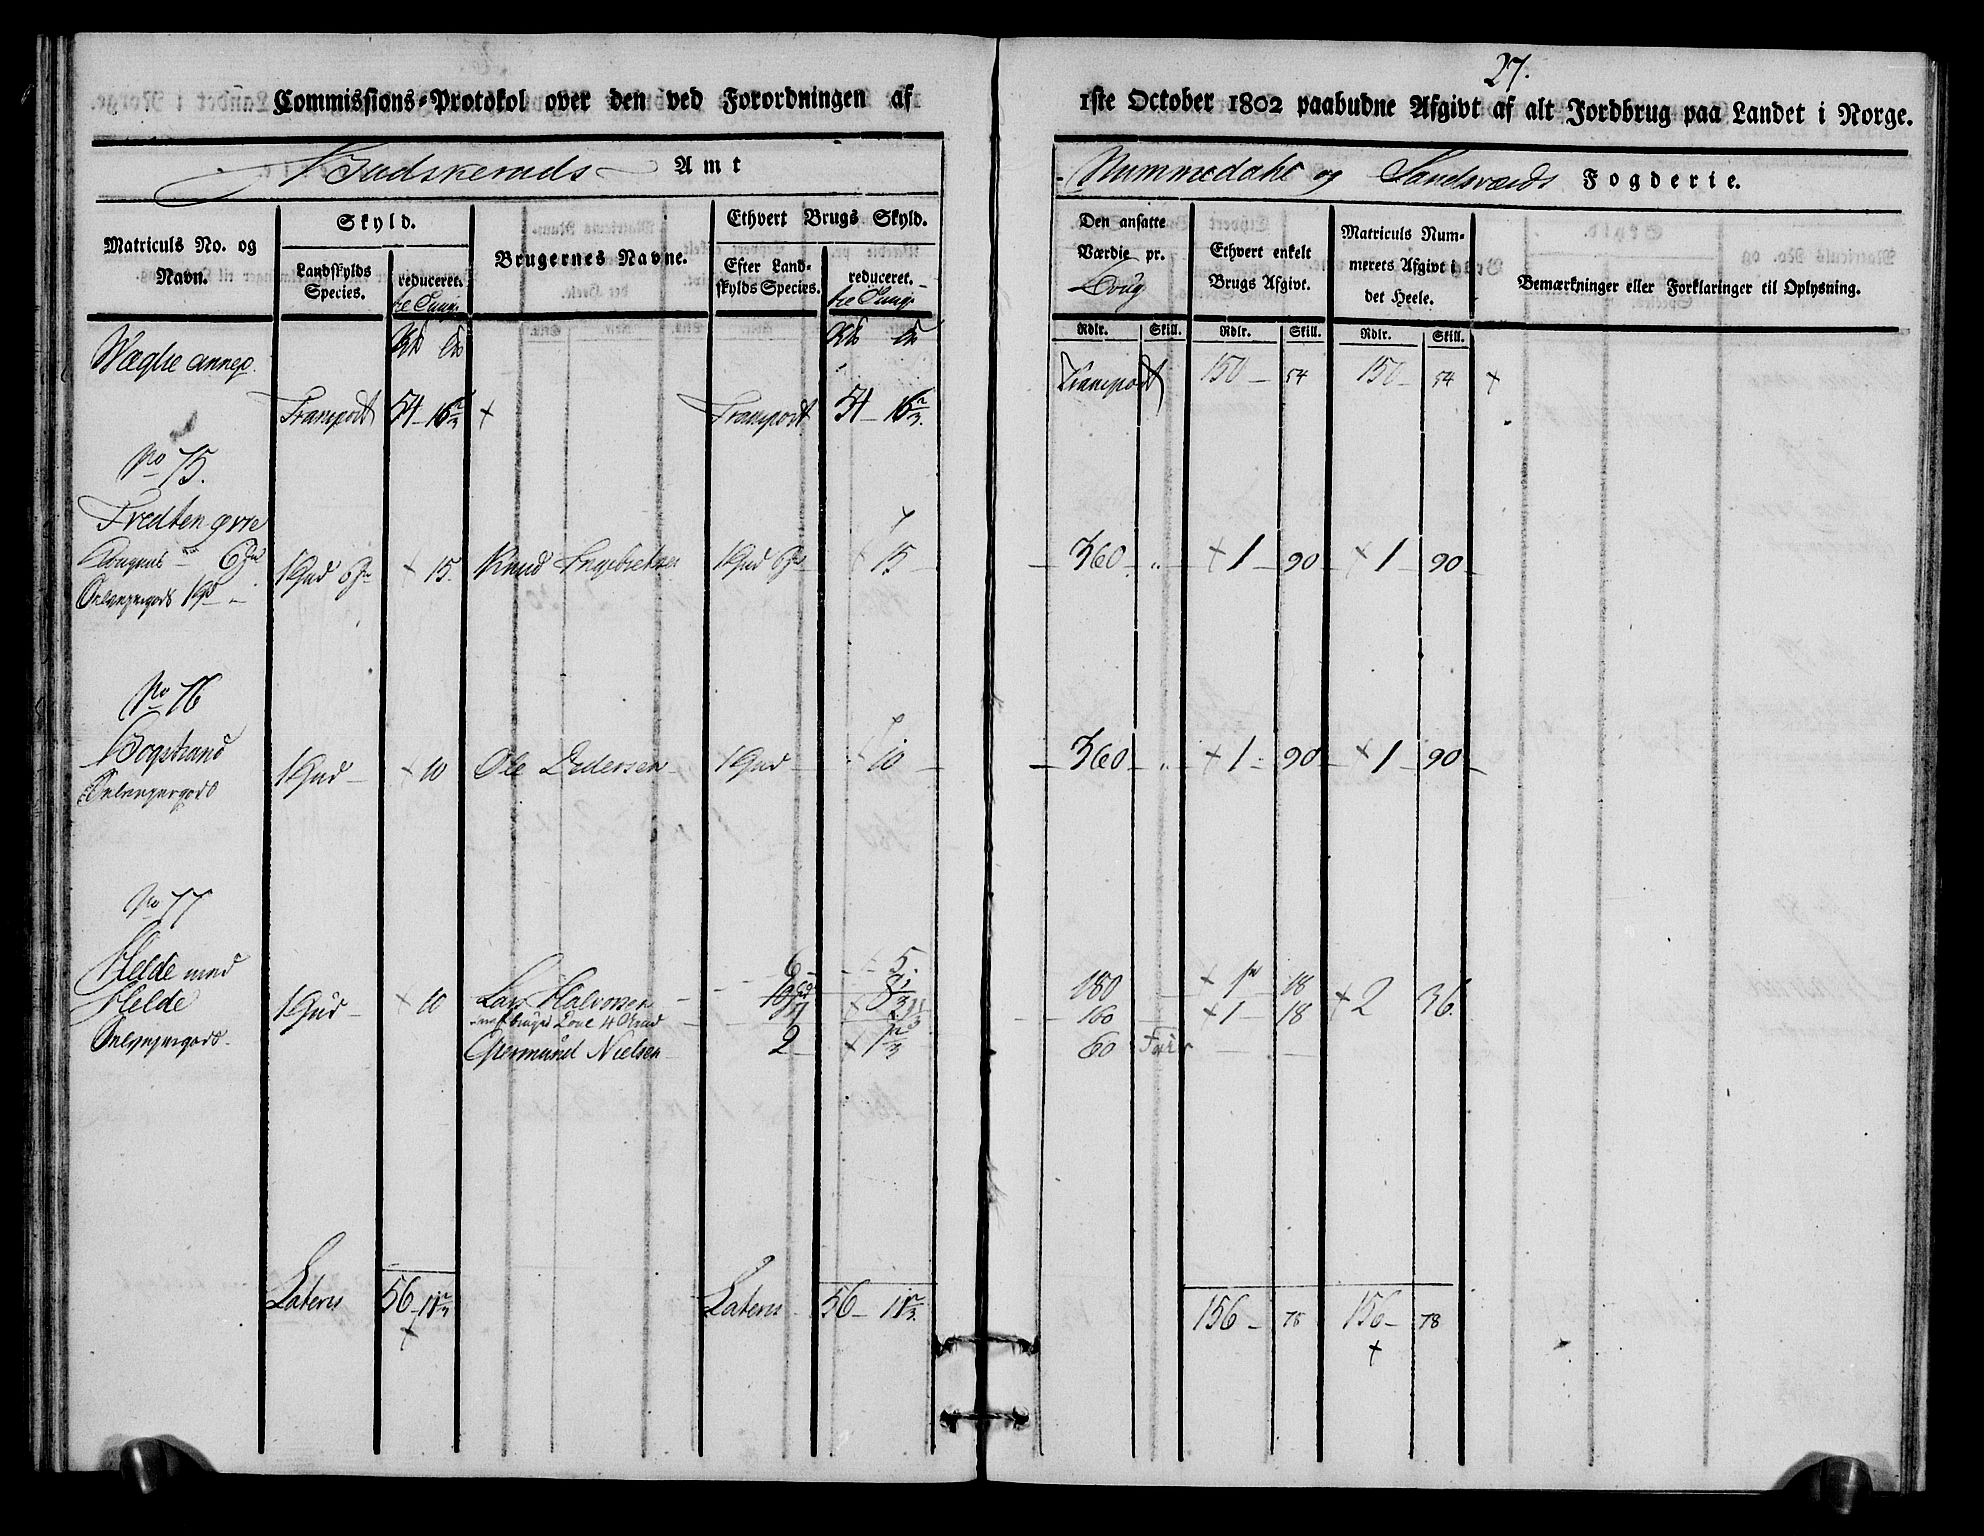 27.
Commissions-Protokol over den ved Forordningen af 1ste October 1802 paabudne Afgivt af alt Jordbrug paa Landet i Norge.
Budskeruds Amt
Nummedahl og Sandsværds Fogderie.
Matriculs No. og Navn.
Skyld.
Landskylds Species.
reduceret.
Brugernes Navne.
Ethvert Brugs Skyld.
Efter Landskylds Species.
reduceret.
Den ansatte Værdie pr.
Ethvert enkelt Brugs Afgivt.
Matriculs Nummerets Afgivt i det Heele.
Bemærkninger eller Forklaringer til Oplysning.
Rdlr. Skill. Rdlr. Skill. Rdlr. Skill.
Transport 150 - 54 150 - 54
Transport 54 - 16 2/3 Transport 54 - 16 2/3
No 75.
Tredten øvre
15. Knud Engebretsen 15 360 " 1 90 1 90
No 76
Bogstrand
Selveyergods
1 Hud 10 Ole Pedersen 1 Hud 10 360 " 1 90 1 90
No 77
Helde med
Helde
Selveyergods
1 Hud 10
Lars Halvorsen 180 1 18 2 36
160 1 18
Giermund Nielsen 2 60 Frie
Lateris 56 - 11 2/3 Lateris 56 - 11 2/3 156 - 78 156 - 78